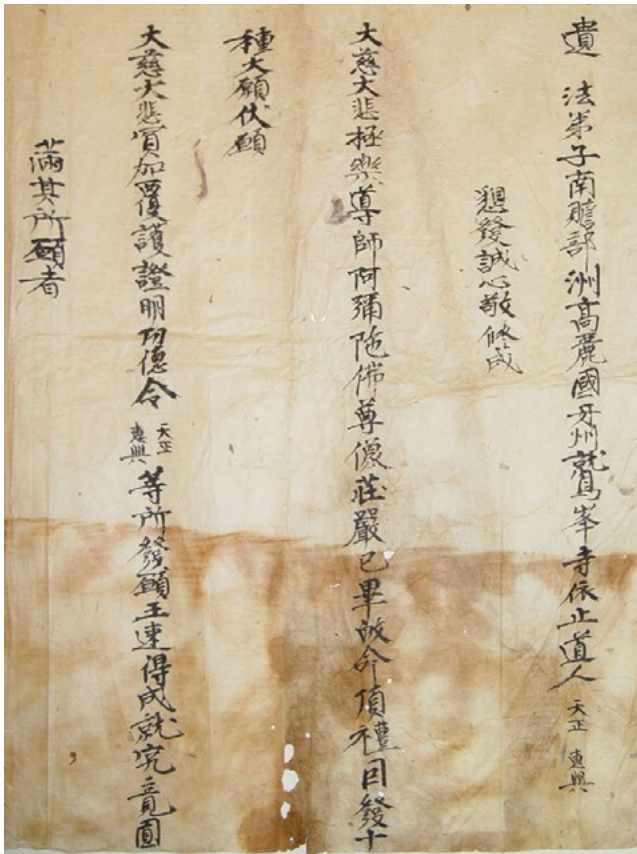 遺法弟子南贍部洲高麗國牙州鷲峯寺依止道人天正惠興
懇發誠心敬修成
大慈大悲極樂導師阿彌陁佛尊儀莊嚴已畢故今頂禮因發十
種大願伏願
大慈大悲冥加覆護證明功德令天正惠興等所發願王速得成就究竟圓
滿其所願者